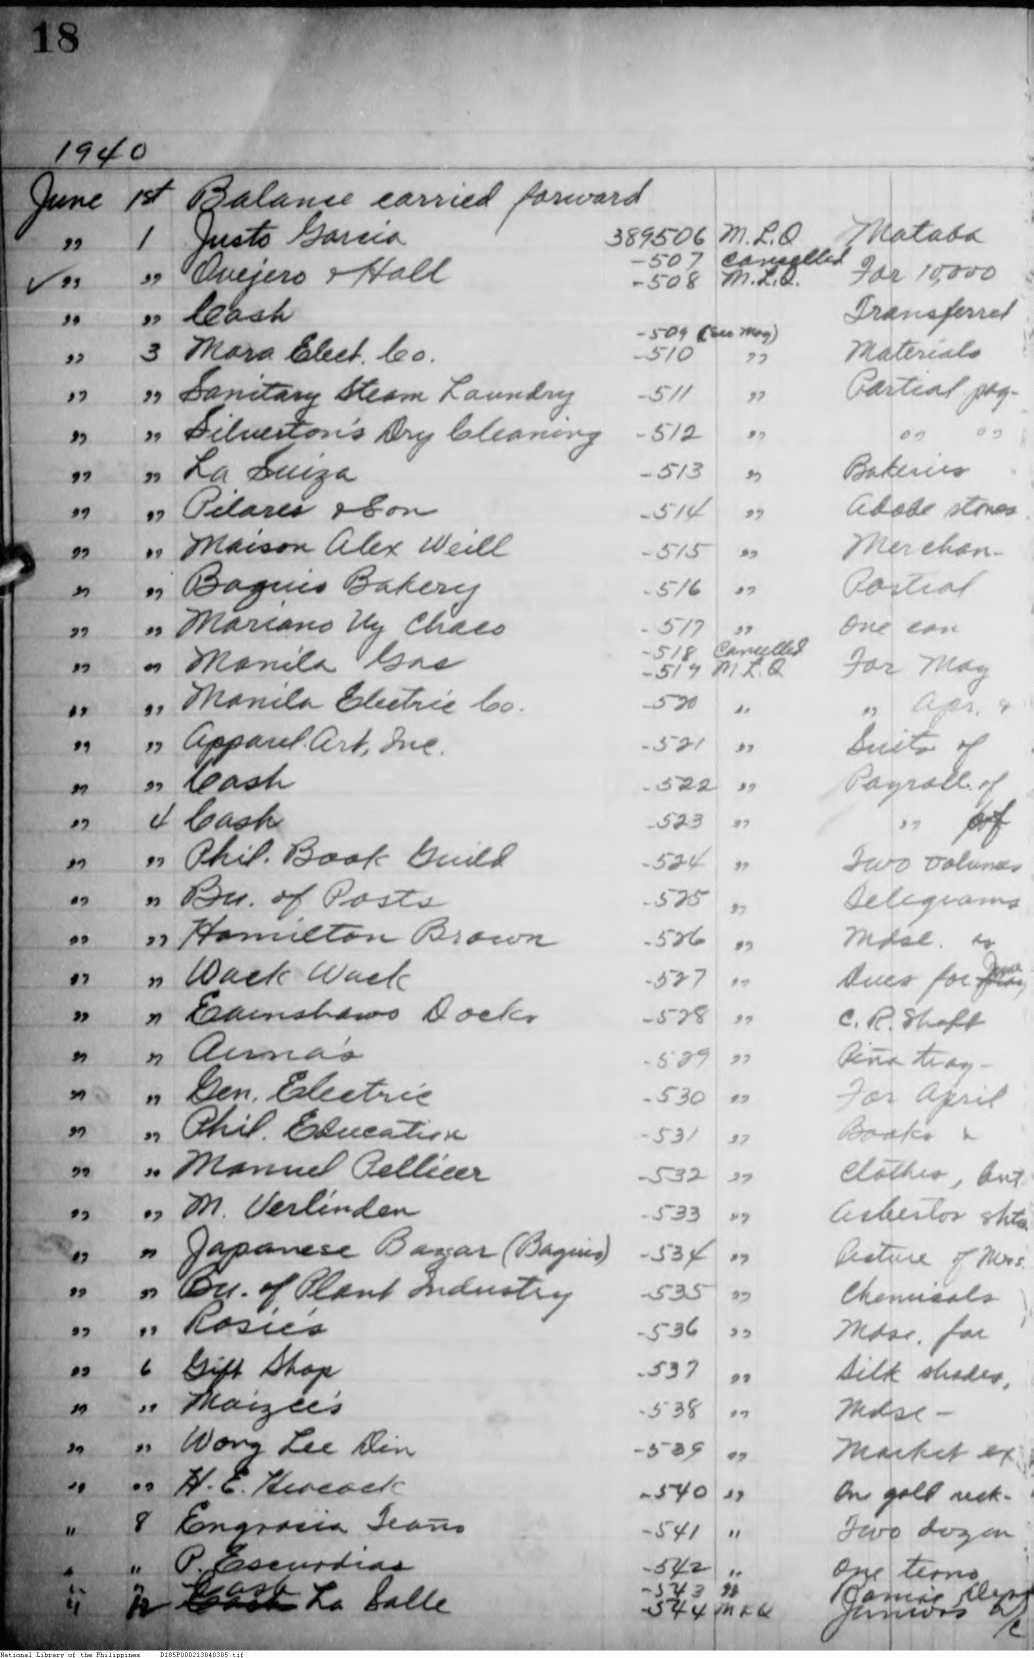 18
1940
June 1st Balance carried forward
" 1 Justo Garcia 389506 M.L.Q Mataba
-507 Cancelled
✓ " " Ovejero & Hall -508 M.L.Q. For 10,000
" " Cash Transferred
-509 (See May)
" 3 Mora Elect. Co. -510 " Materials
" " Sanitary Steam Laundry -511 " Partial pay-
" " Silverton's Dry Cleaning -512 " " "
" " La Suiza -513 " Bakeries
" " Pilares & Son -514 " Adobe stones
" " Maison Alex Weill -515 " Merchan-
" " Baguio Bakery -516 " Partial
" " Mariano Uy Chaco -517 " One can
-518 Cancelled
" " Manila Gas -519 M.L.Q For May
" " Manila Electric Co. -520 " " Apr. &
" " Apparel Art, Inc. -521 " Suits of
" " Cash -522 " Payroll of
" 4 Cash -523 " " of
" " Phil. Book Guild -524 " Two volumes
" " Bu. of Posts -525 " Telegrams
" " Hamilton Brown -526 " Mdse. as
" " Wack Wack -527 " Dues for June
" " Earnshaws Docks -528 " C.R. Shaft
" " Aurna's -529 " Piña tray-
" " Gen. Electric -530 " For April
" " Phil. Education -531 " Books &
" " Manuel Pellicer -532 " Clothes, but
" " M. Verlinden -533 " Asbestos shts
" " Japanese Bazar (Baguio) -534 " Picture of Mrs.
" " Bu. of Plant Industry -535 " Chemicals
" " Rosie's -536 " Mdse. for
" 6 Gift Shop -537 " Silk shades,
" " Maizee's -538 " Mdse-
" " Wong Lee Din -539 " Market ex
" " H. E. Heacock -540 " On gold neck-
" 8 Engracia Teaño -541 " Two dozen
" " P. Escurdias -542 " One terno
" " Cash -543 "
" " La Salle -544 MLQ Juniors
National Library of the Philippines D185P000213840305.tif